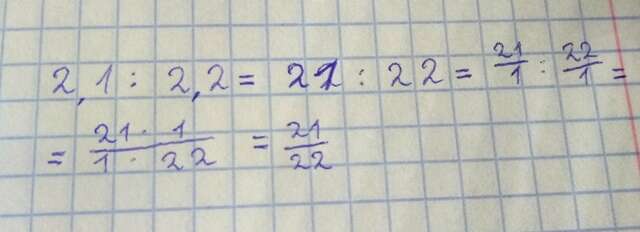 2,1 : 2,2 = 21 : 22 = 21/1 : 22/1 =
= 21 · 1 / 1 · 22 = 21/22